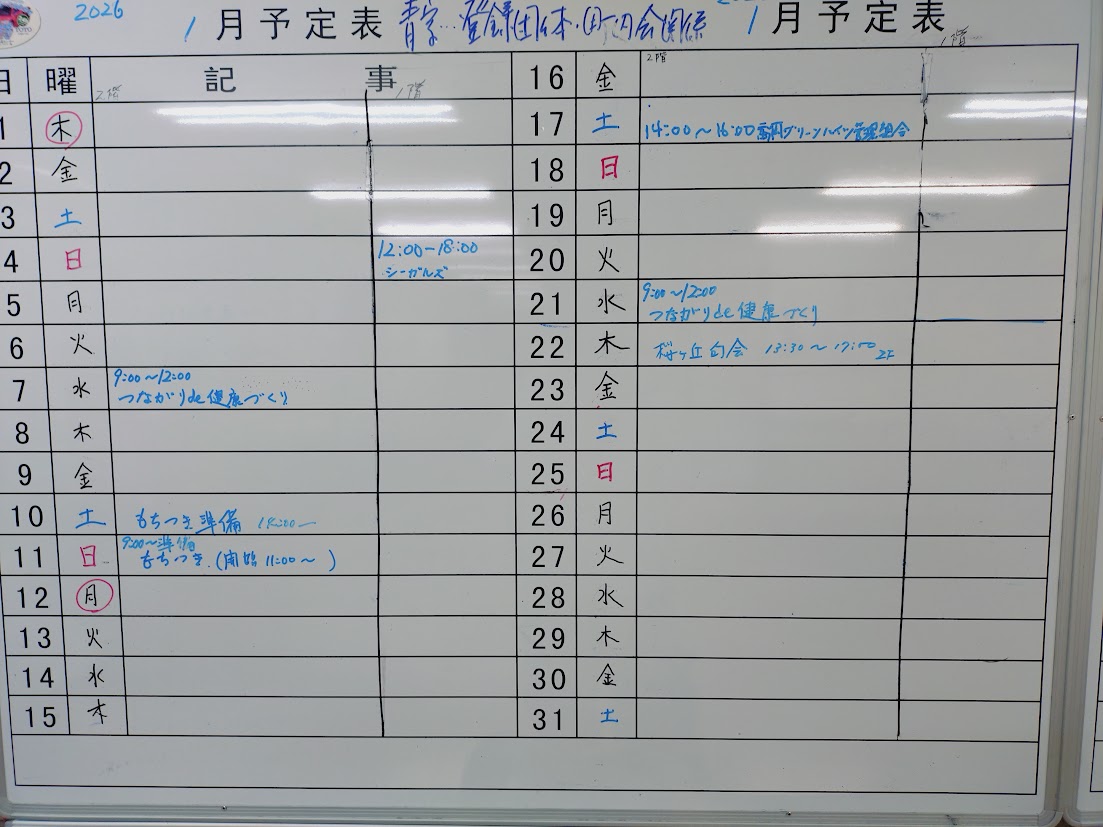 2026
1月予定表 青字…登録団体・町内会関係 1月予定表
1階
日 曜 記事
2階 1階
1 木
2 金
3 土
4 日 12:00-18:00
シーガルズ
5 月
6 火
7 水 9:00~12:00
つながりde健康づくり
8 木
9 金
10 土 もちつき準備
11 日 9:00~準備
もちつき.(開臨 11:00~ )
12 月
13 火
14 水
15 木
2階
16 金
17 土 14:00~16:00 グリーンハイツ管理組合
18 日
19 月
20 火
21 水 9:00~12:00
つながりde健康づくり
22 木 桜ヶ丘 13:30~17:00 2F
23 金
24 土
25 日
26 月
27 火
28 水
29 木
30 金
31 土